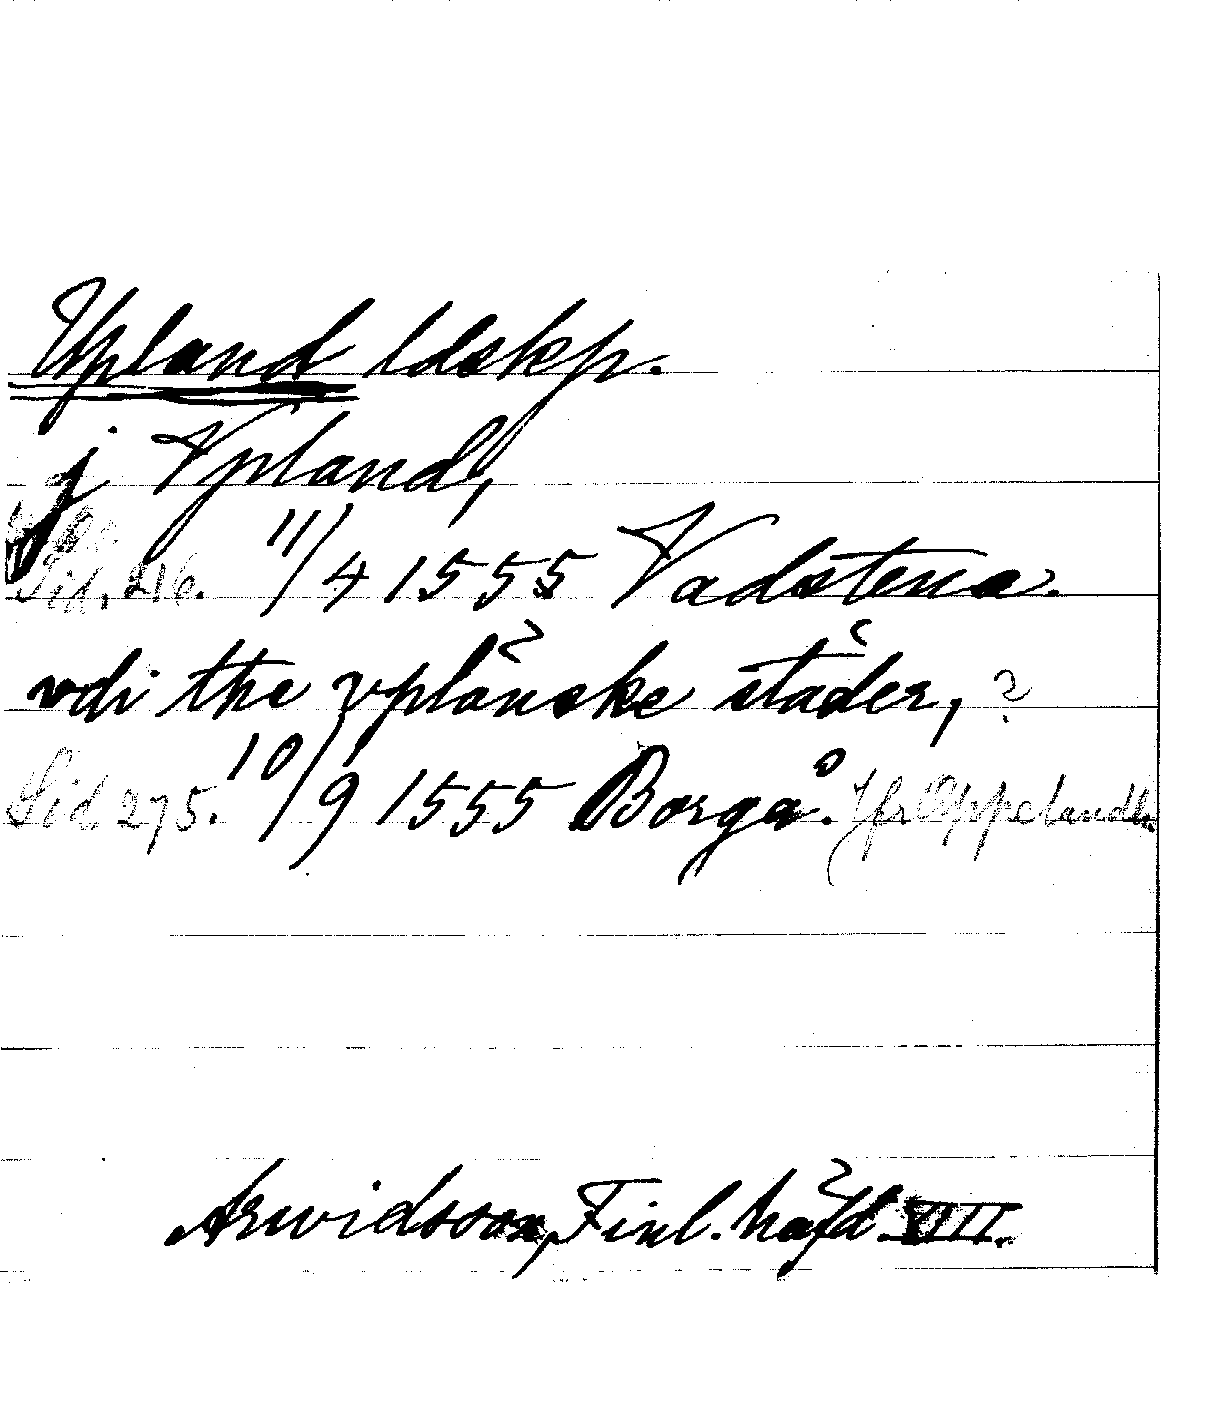 Upland ldskp.
j Vpland,
Sid. 216. 11/4 1555 Vadstena.
vdi the vplänske städer, ?
Sid 275. 10/9 1555 Borgå. Jfr Oppelandh.
Arwidsson, Finl. häfd. VIII.